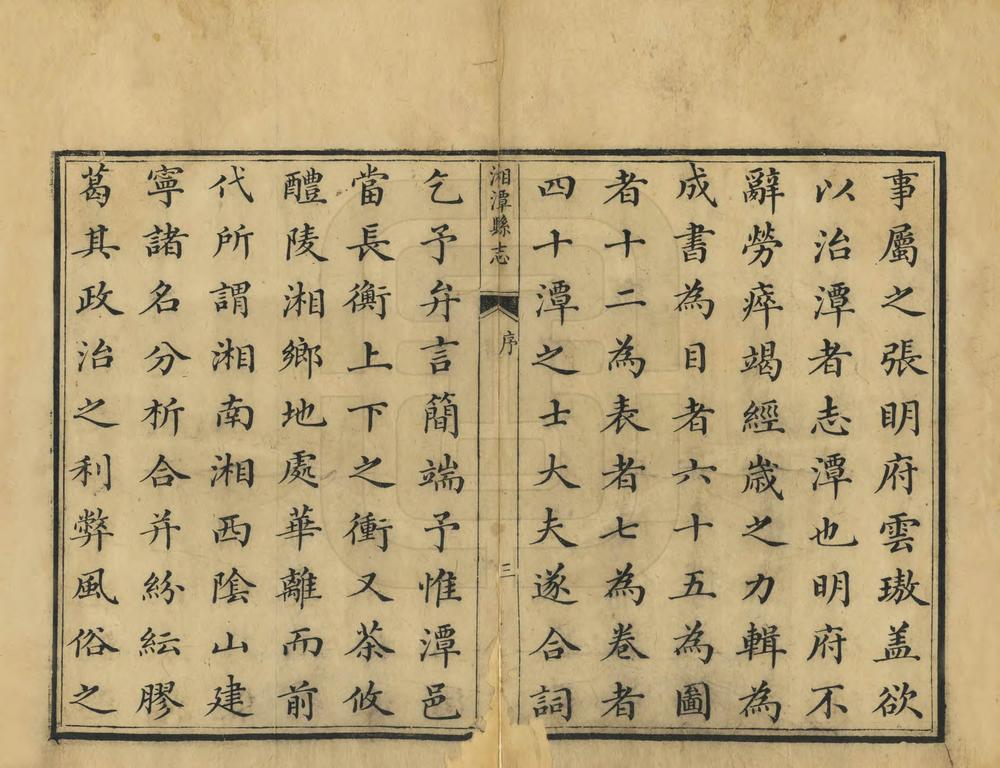 事屬之張明府雲璈盖欲
以治潭者志潭也明府不
辭勞瘁竭經歳之力輯為
成書為目者六十五為圖
者十二為表者七為卷者
四十潭之士大夫遂合詞
湘潭縣志
序
三
乞予弁言簡端予惟潭邑
當長衡上下之衝又茶攸
醴陵湘鄉地處華離而前
代所謂湘南湘西陰山建
寧諸名分析合并紛紜膠
葛其政治之利弊風俗之